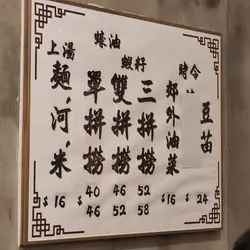 蠔油
蝦籽
時令
上湯
麵、河、米
單拼撈
雙拼撈
三拼撈
郊外油菜
豆苗
$16
$40 46 52
46 52 58
$16
$24